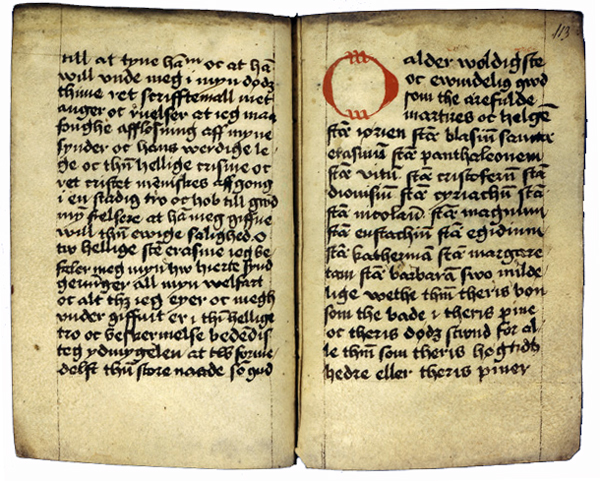 till at tyne hām oc at hā
will vnde meg i myn dødz
thime ret scrifftemall met
anger oc rwelser at ieg maa
fonghe afflösning aff myne
synder oc hans werdige le
ge oc thn̄ hellige crisme oc
ret cristet menniskes affgong
i en stadig tro oc hob till gwd
myn frelsere at hā meg giffue
will thn̄ ewige salighed O
tw hellige stē erasme ieg be
faler meg myn hw hierte synd
gerninger all myn welfart
oc alt thz ieg eyer oc megh
vnder giffuit er i thn̄ hellige
tro oc beskermelse bedendis
teg ydmygelen at tw forwe
delst thn̄ store naade so gud
113
O alder woldigste
oc ewindelig gwd
som the ärefulde
martires oc helgē
stā iörien stā blasiū sancta
erasmū stā panthaleonem
stā vitū stā cristoferū stā
dionisiū stā cyriacū stā
stā nicolaū stā magnum
stā eustachiū stā egidium
stā katherinā stā margare
tam stā barbarā swo milde
lige wethe thm̄ theris bon
som the bade i theris pine
oc theris dødz stwnd for al
le thm̄ som theris högtidh
hedre eller theris piner